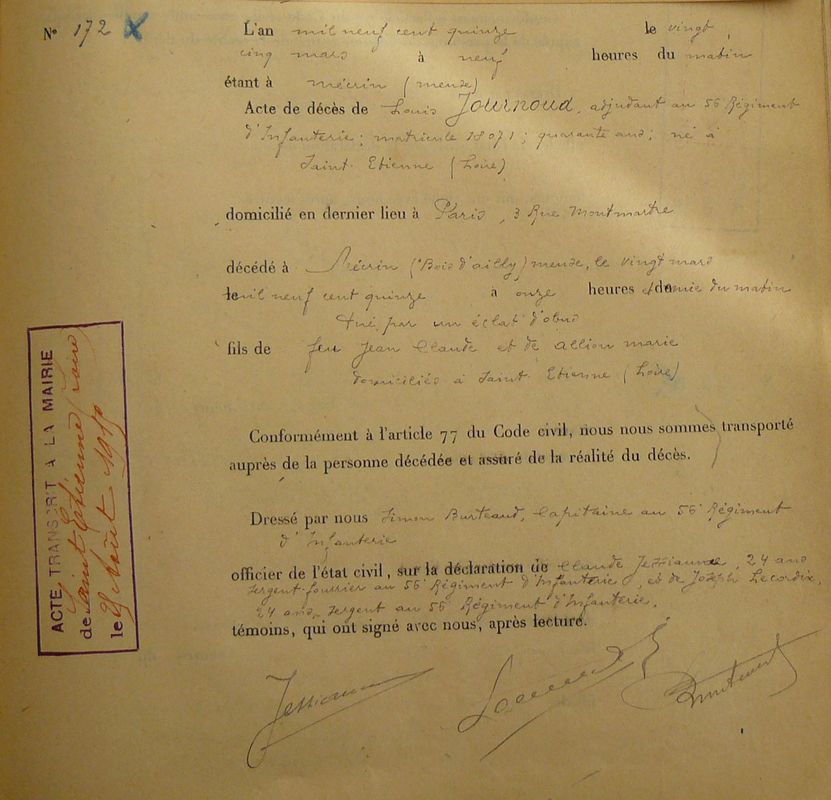 N° 172 X
L'an mil neuf cent quinze le vingt
cinq mars à neuf heures du matin
étant à Mécrin (meuse)
Acte de décès de Louis Journoud, adjudant au 56e Régiment
d'Infanterie; matricule 18071; quarante ans; né à
Saint-Etienne (Loire)
domicilié en dernier lieu à Paris, 3 Rue Montmartre
décédé à Mécrin (Bois d'ailly) meuse, le vingt mars
le mil neuf cent quinze à onze heures et demie du matin
tué par un éclat d'obus
fils de feu Jean Claude et de Allion marie
domiciliés à Saint Etienne (Loire)
Conformément à l'article 77 du Code civil, nous nous sommes transporté
auprès de la personne décédée et assuré de la réalité du décès.
Dressé par nous Simon Burteaud, Capitaine au 56e Régiment
d'Infanterie
officier de l'état civil, sur la déclaration de Claude Jessiaume, 24 ans
sergent fourrier au 56e Régiment d'Infanterie, et de Joseph Lecordix,
24 ans, sergent au 56e Régiment d'Infanterie,
témoins, qui ont signé avec nous, après lecture.
Jessiaume
ACTE TRANSCRIT A LA MAIRIE
de Saint Etienne (Loire)
le Août